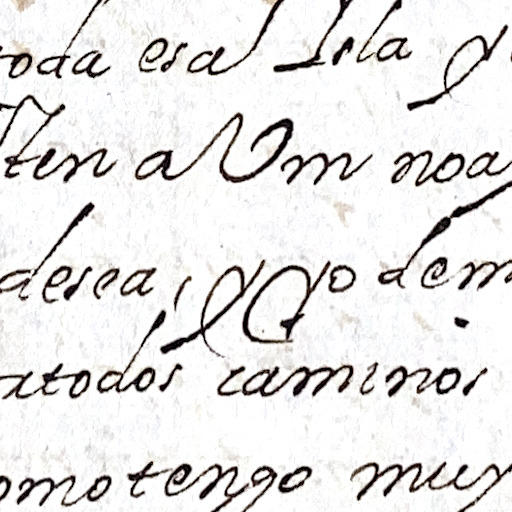 toda esa Isla y
ten a Vm no ay
desea, y yo dem
atodos caminos
omo tengo muy